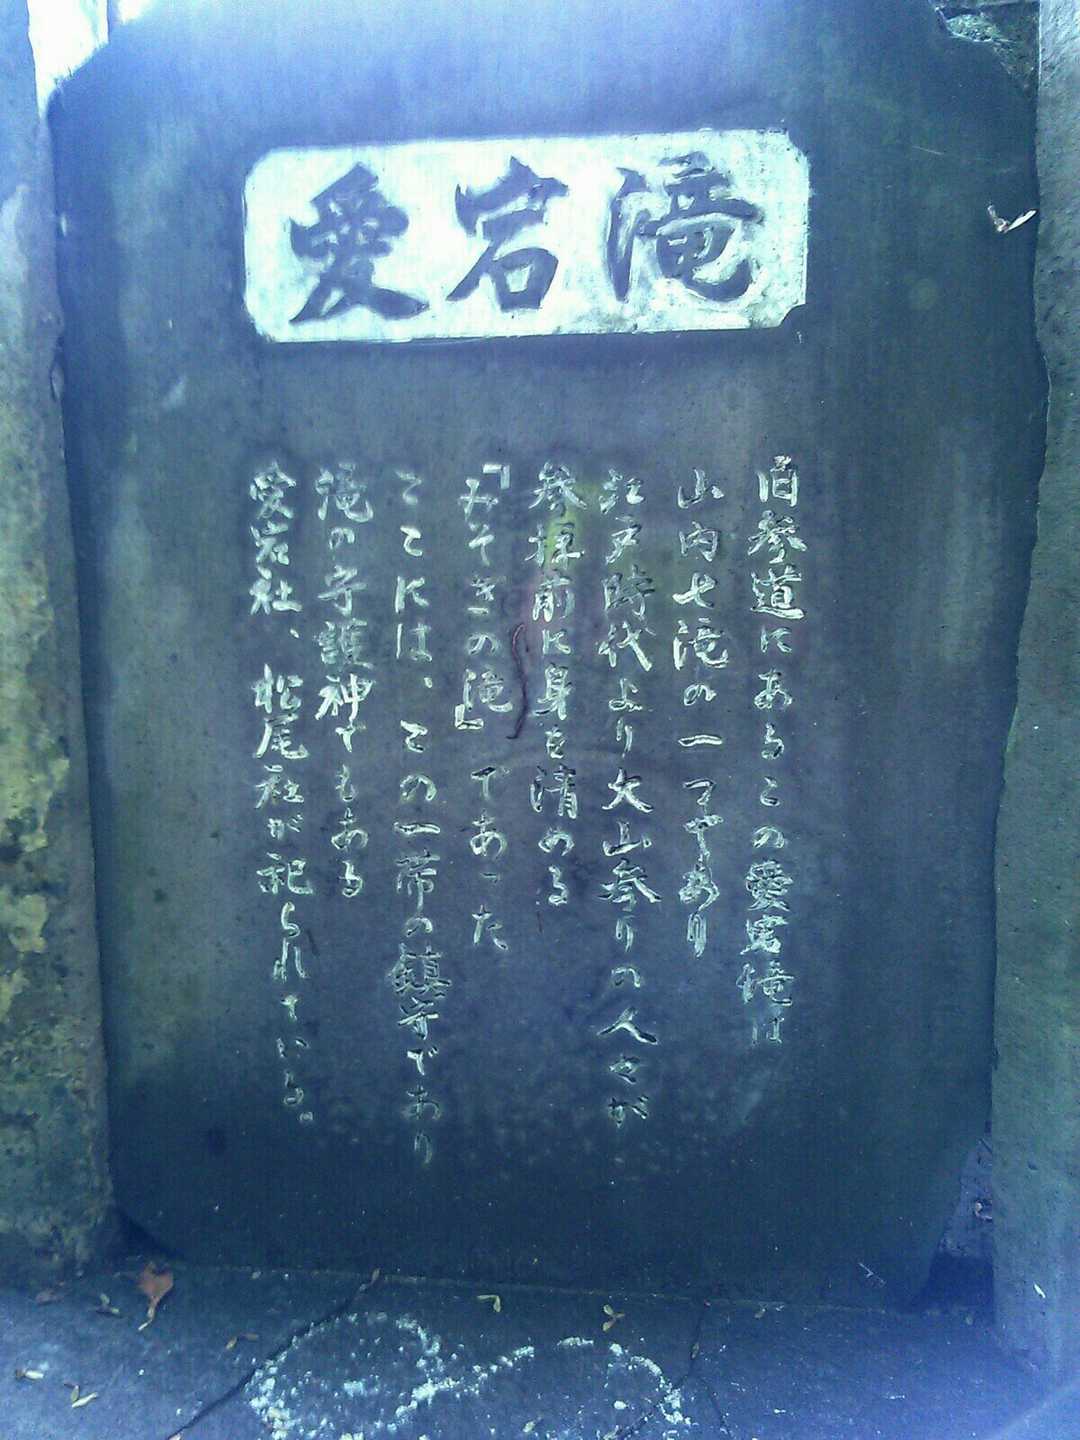 愛宕滝
旧参道にあるこの愛宕滝は
山内七滝の一つであり
江戸時代より大山参りの人々が
参拝前に身を清める
「みそぎの滝」であった
ここには、この一帯の鎮守であり
滝の守護神でもある
愛宕社、松尾社が祀られている。